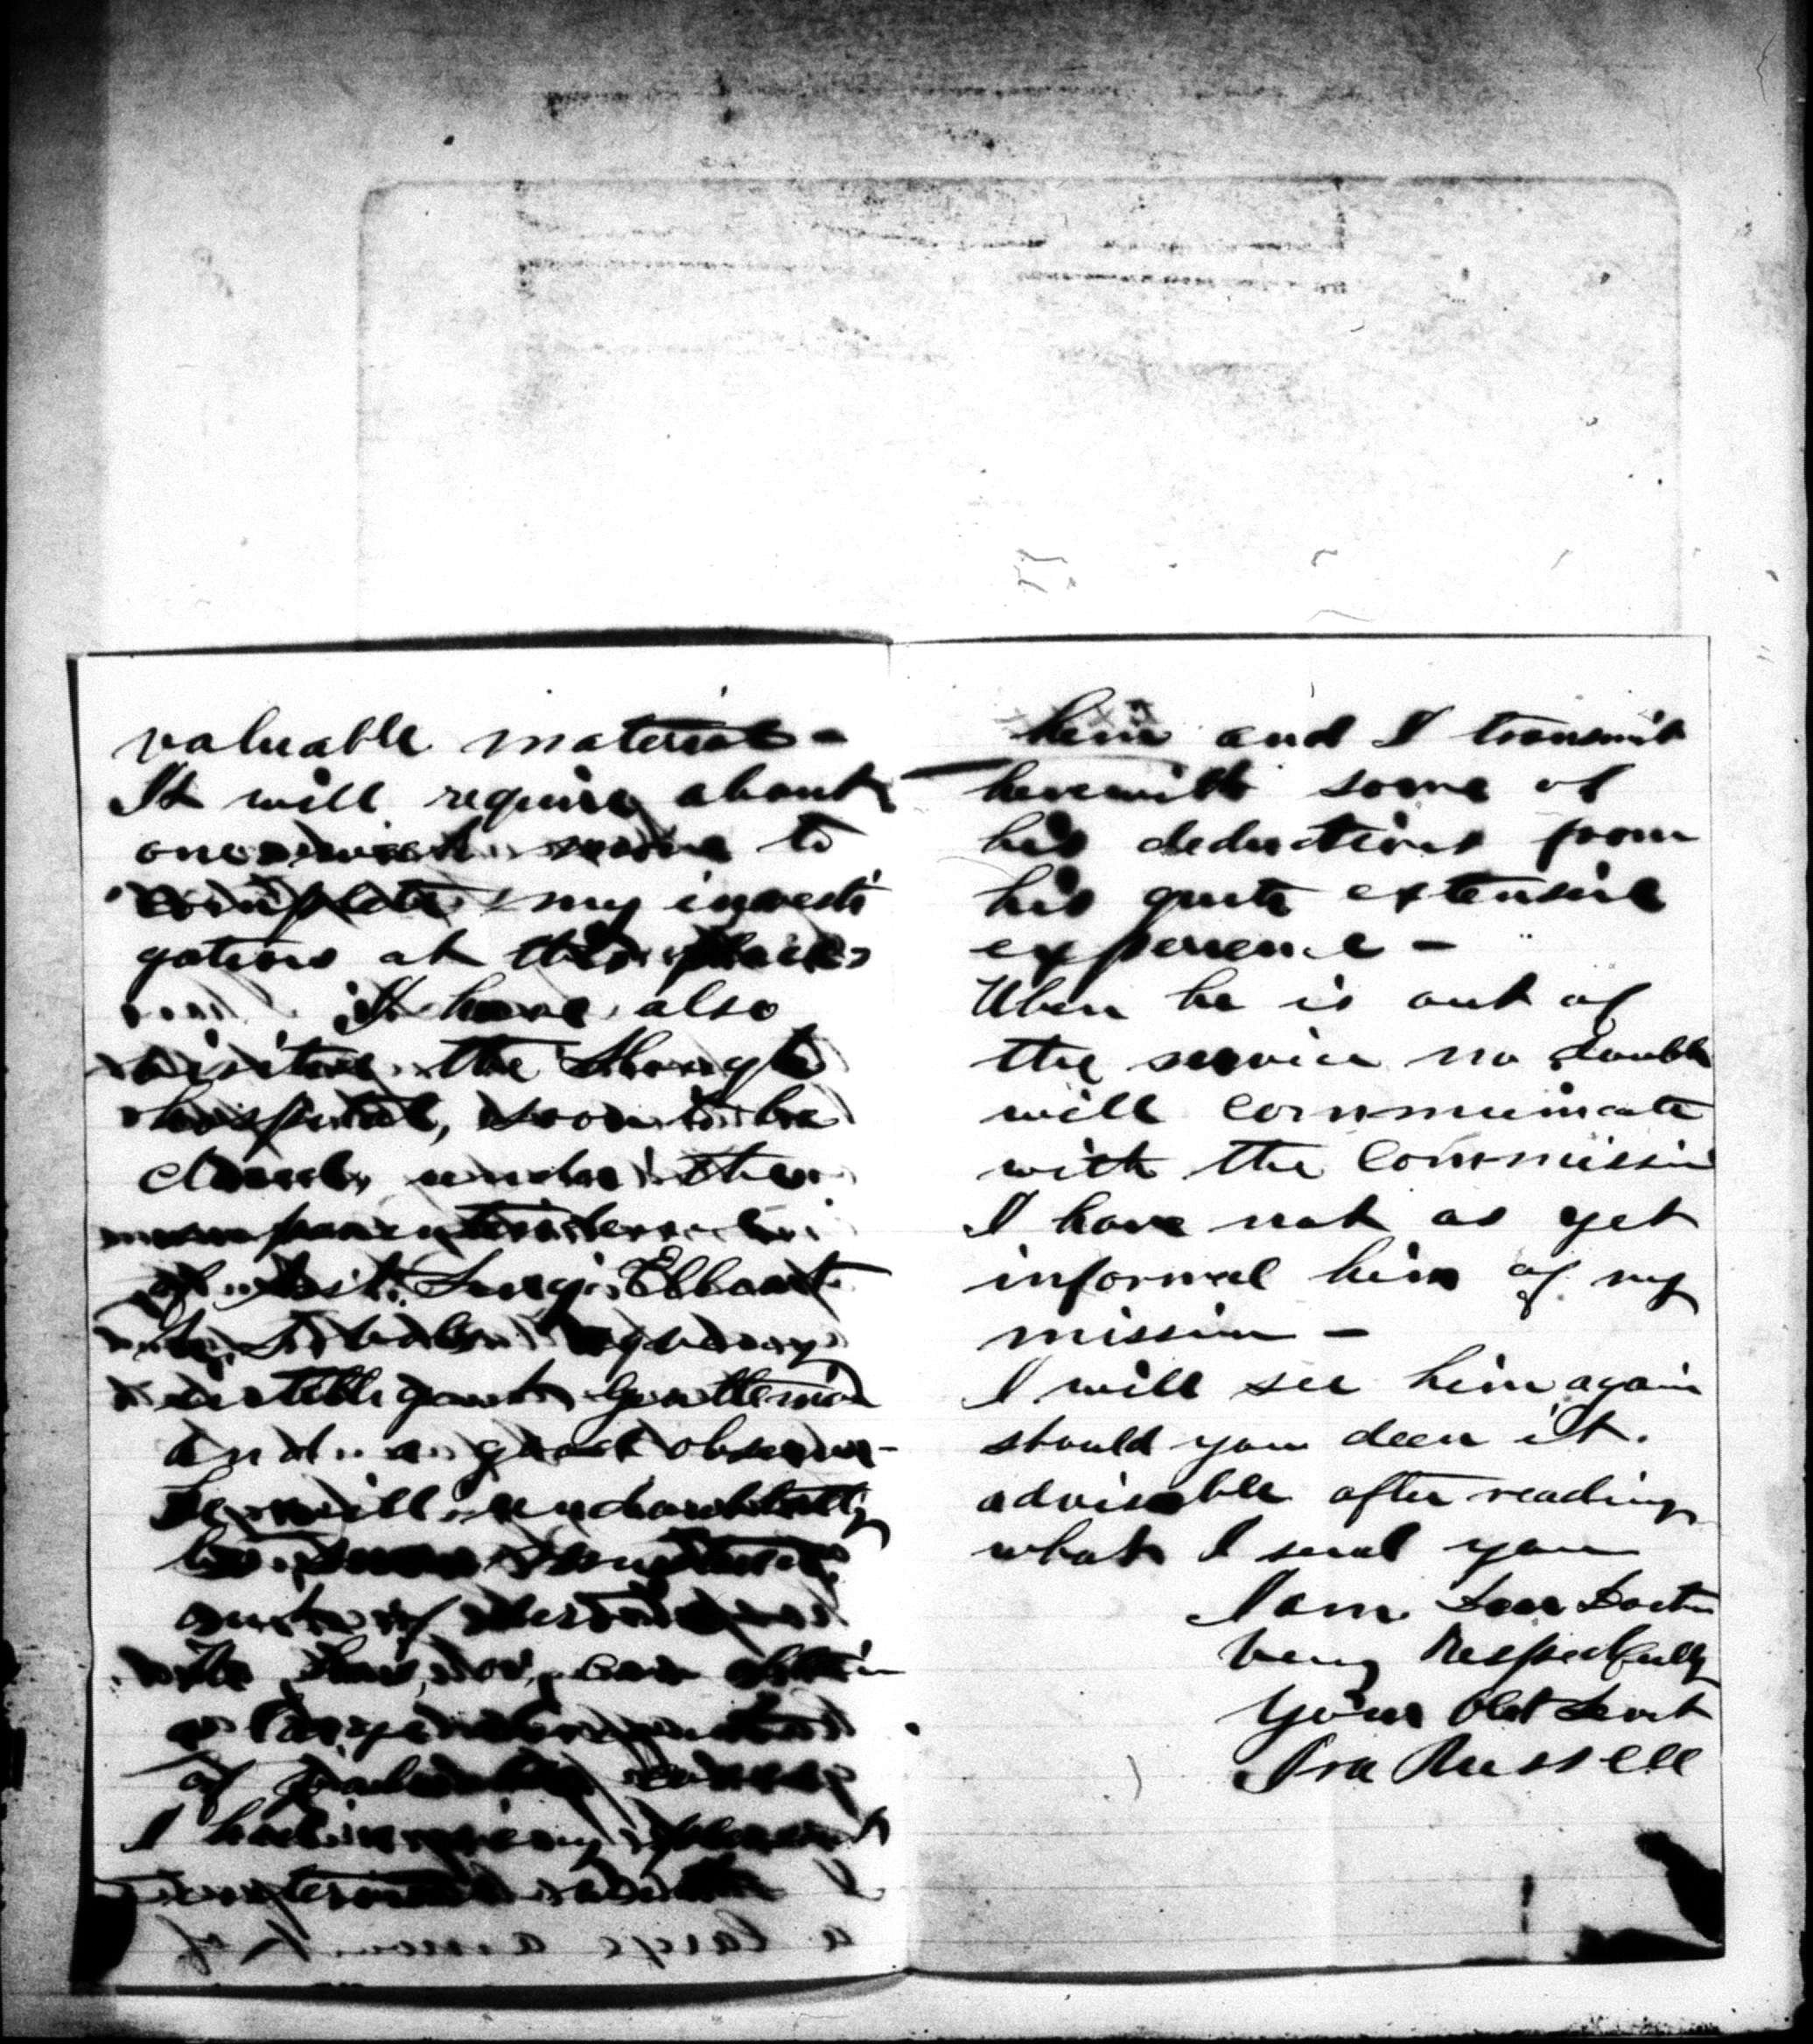 valuable material -
It will require about
one week more to
complete my investi
gations at this place
I have also
visited the Slough
hospital, soon to be
closed, under the
superintendence
of Asst. Surg.
He is a very
intelligent gentleman
and a good observer -
he will undoubtedly
be
out of service
He has,
a large
of valuable
I had
interview with
a large amount of
him and I transmit
herewith some of
his deductions from
his quite extensive
experience -
When he is out of
the service no doubt
will communicate
with the Commission
I have not as yet
informed him of my
mission -
I will see him again
should you deem it
advisable after reading
what I send you
I am Dear Doctor
very Respectfully
Your Obt Servt
Ira Russell